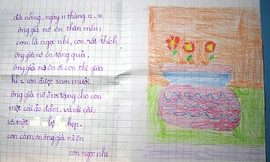 đà nẵng, ngày 11 tháng 12
ông già nô en thân mến!
con là ngọc nhi, con rất thích
ông già nô en tặng quà.
ông già nô en ơi con thì giữa
kì 1 con được 10 điểm
ông già nô en ơi tặng cho con
một cái áo đầm, và cái cài
và một hộp kẹp.
con cảm ơn ông già nô en
con ngọc nhi